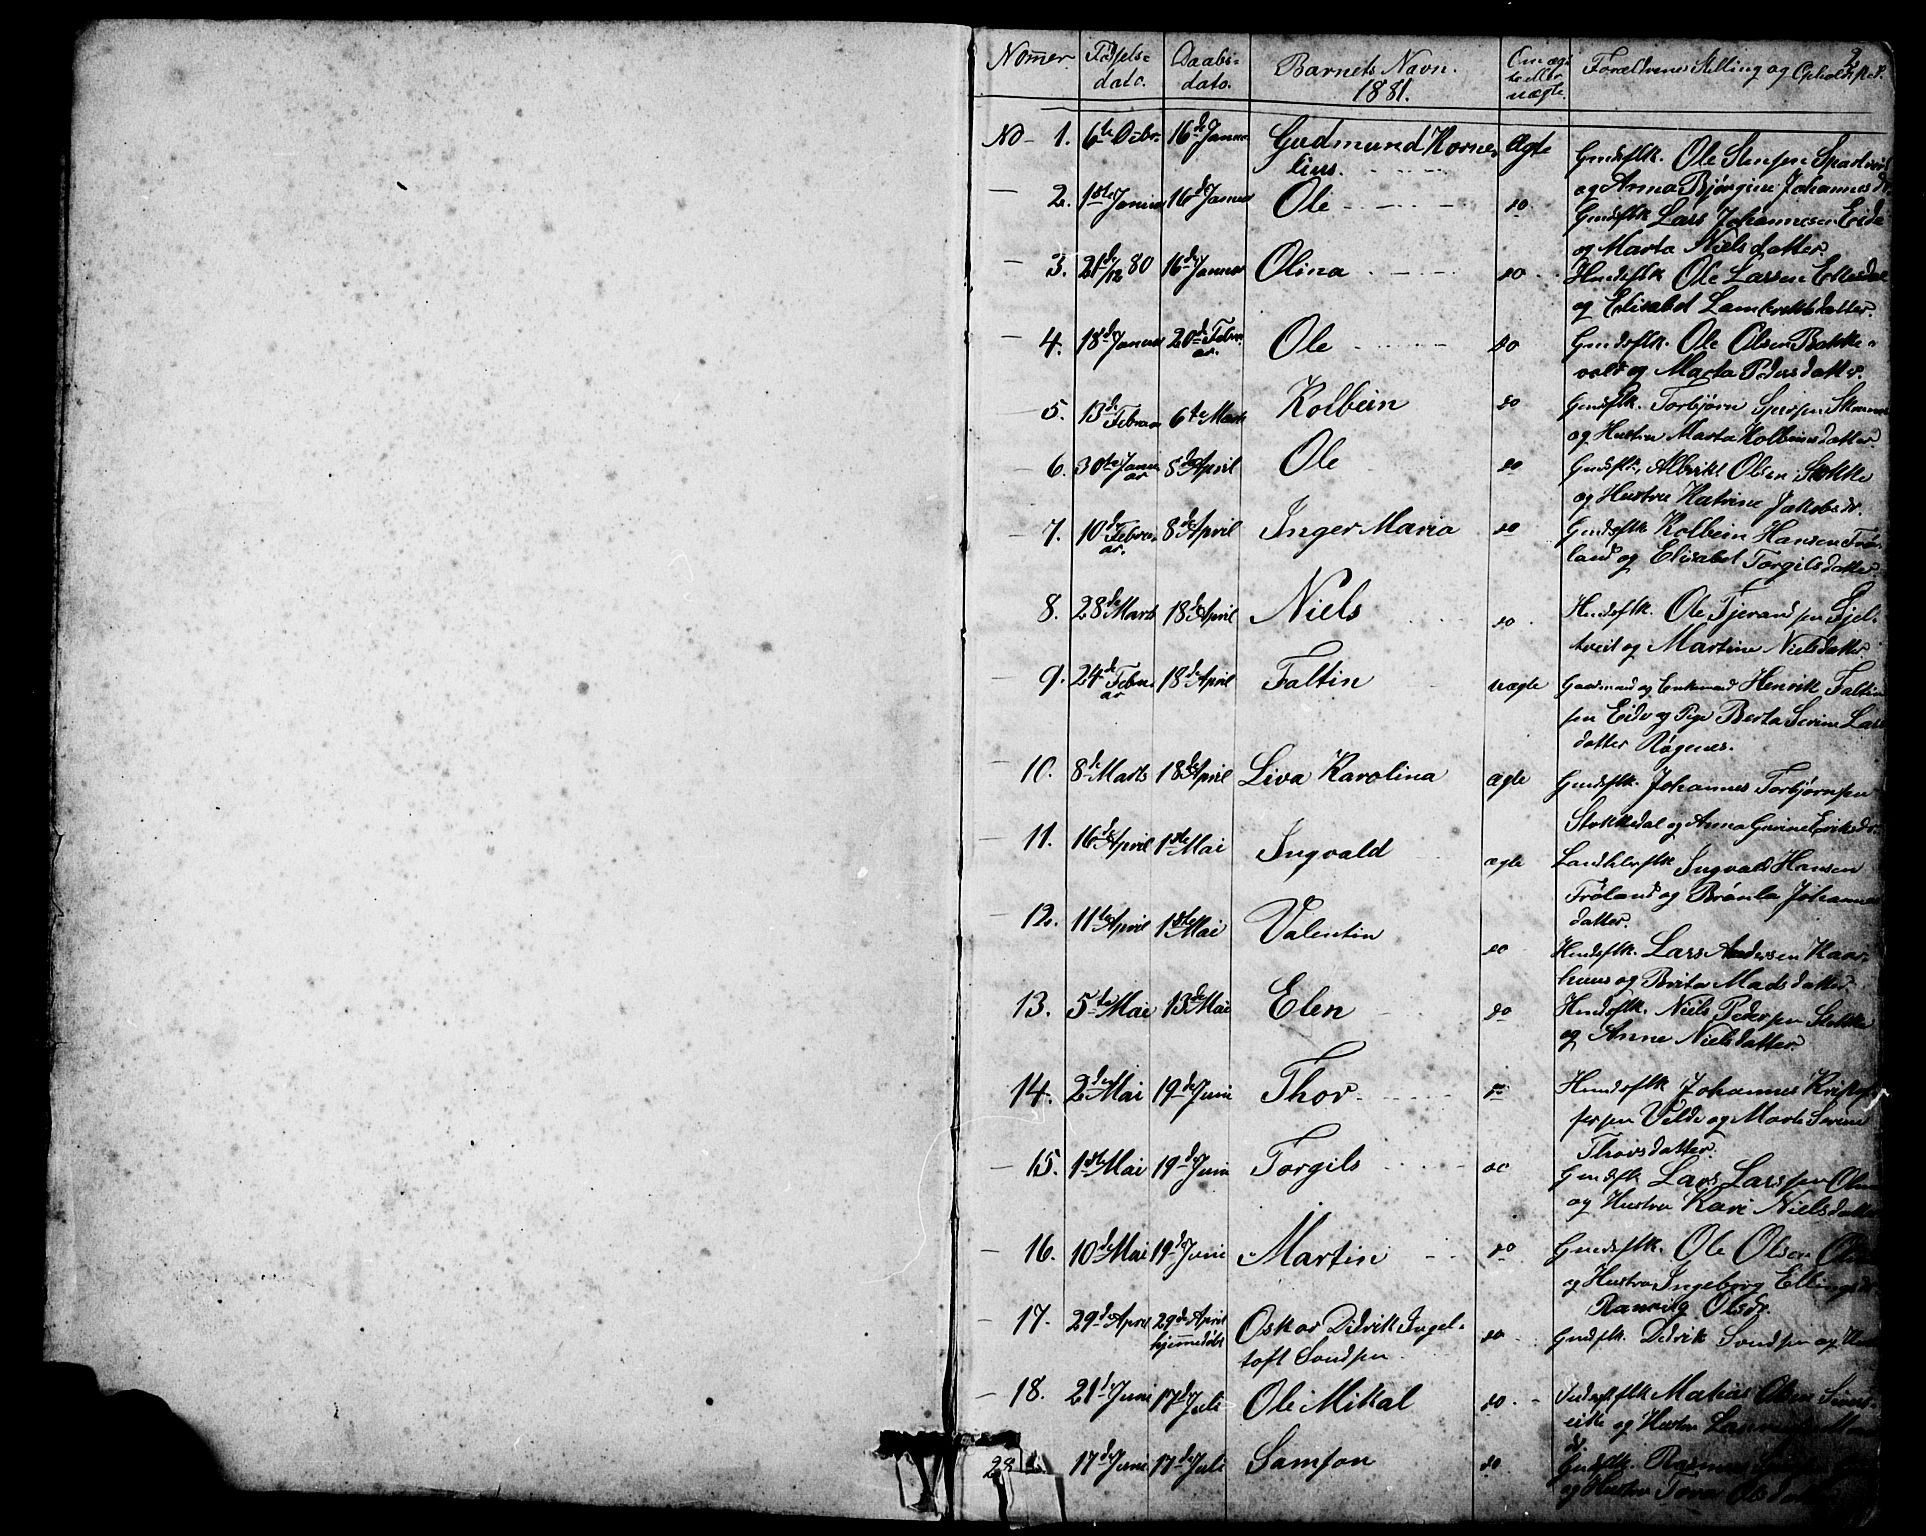 2
Nomer Fødsels= Daabs= Barnets Navn. Om æg= Forældrenes Stilling og Opholdssted.
dato. dato. 1881. te eller
uægte.
No 1. 6te Octbr. 16de Januar Gudmund Korne= Ægte Gmdsflk. Ole Stensen
lius. og Anna Bjørgine Johannesdr.
2. 1ste Januar 16de Januar Ole do Gmdsflk Lars Johannesen Eide
og Marta Nielsdatter
3. 21de/12 80 16de Januar Olina do Hmdsflk Ole Larsen
og Elisabet Lamrektsdatter.
4. 18de Januar 20de Febru Ole do Gmdsflk. Ole Olsen Bakke=
ar. vold og Marta Pedersdatter.
5. 13de Februar 6te Marts Kolbein do Gmdsflk. Torbjørn
og Hustru Marta Kolbeinsdatter.
6. 30te Janu 8de April Ole do Gmdsflk. Albrikt Olsen Stokke
ar og Hustru Katrine Jakobsdr.
7. 10de Febru 8de April Inger Maria do Gmdsflk Kolbein Hansen Frø=
ar. land og Elisabet Torgilsdatter
8. 28de Marts 18de April Niels do Hmdsflk. Ole Tjerandsen Fjel=
tveit og Martine Nielsdatter
9. 24de Febru 18de April Faltin uægte Gaardmand og Enkemand Henrik Faltin
ar sen Eide og Pige Berta Serine Lars
datter Røgenes.
10. 8de Marts 18de April Liva Karolina ægte Gmdsflk. Johannes Torbjørnsen
Stokkedal og Anna Gurine Eriksdr.
11. 16de April 1ste Mai Ingvald ægte Ingvald Hansen
Frøland og Brønla Johannes
datter.
12. 11te April 1ste Mai Valentin do Hmdsflk. Lars Andersen Kaar=
huus og Brita Madsdatter
13. 5te Mai 13de Mai Elen do Hmdsflk. Niels Pedersen Stokke
og Anne Nielsdatter.
14. 2den Mai 19de Juni Thor do Hmdsflk Johannes Kristof
fersen Vilde og Marta Serine
Thorsdatter.
15. 1ste Mai 19de Juni Torgils do Gmdsflk Lars Larssen
og Hustru Kari Nielsdatter
16. 10de Mai 19de Juni Martin do Gmdsflk. Ole Olsen
og Hustru Ingeborg Ellingsdr.
Ranveig Olsdr.
17. 29de April 29de April Oskar Didrik Ingel= do Gmdsflk. Didrik Svendsen og
hjemmedøbt toft Svendsen
18. 21de Juni 17de Juli Ole Mikal do Matias Olsen
og Hustru
dr.
17de Juni 17de Juli Samson do Gmdsflk. Rasmus
og Hustru Tova Olsdatter